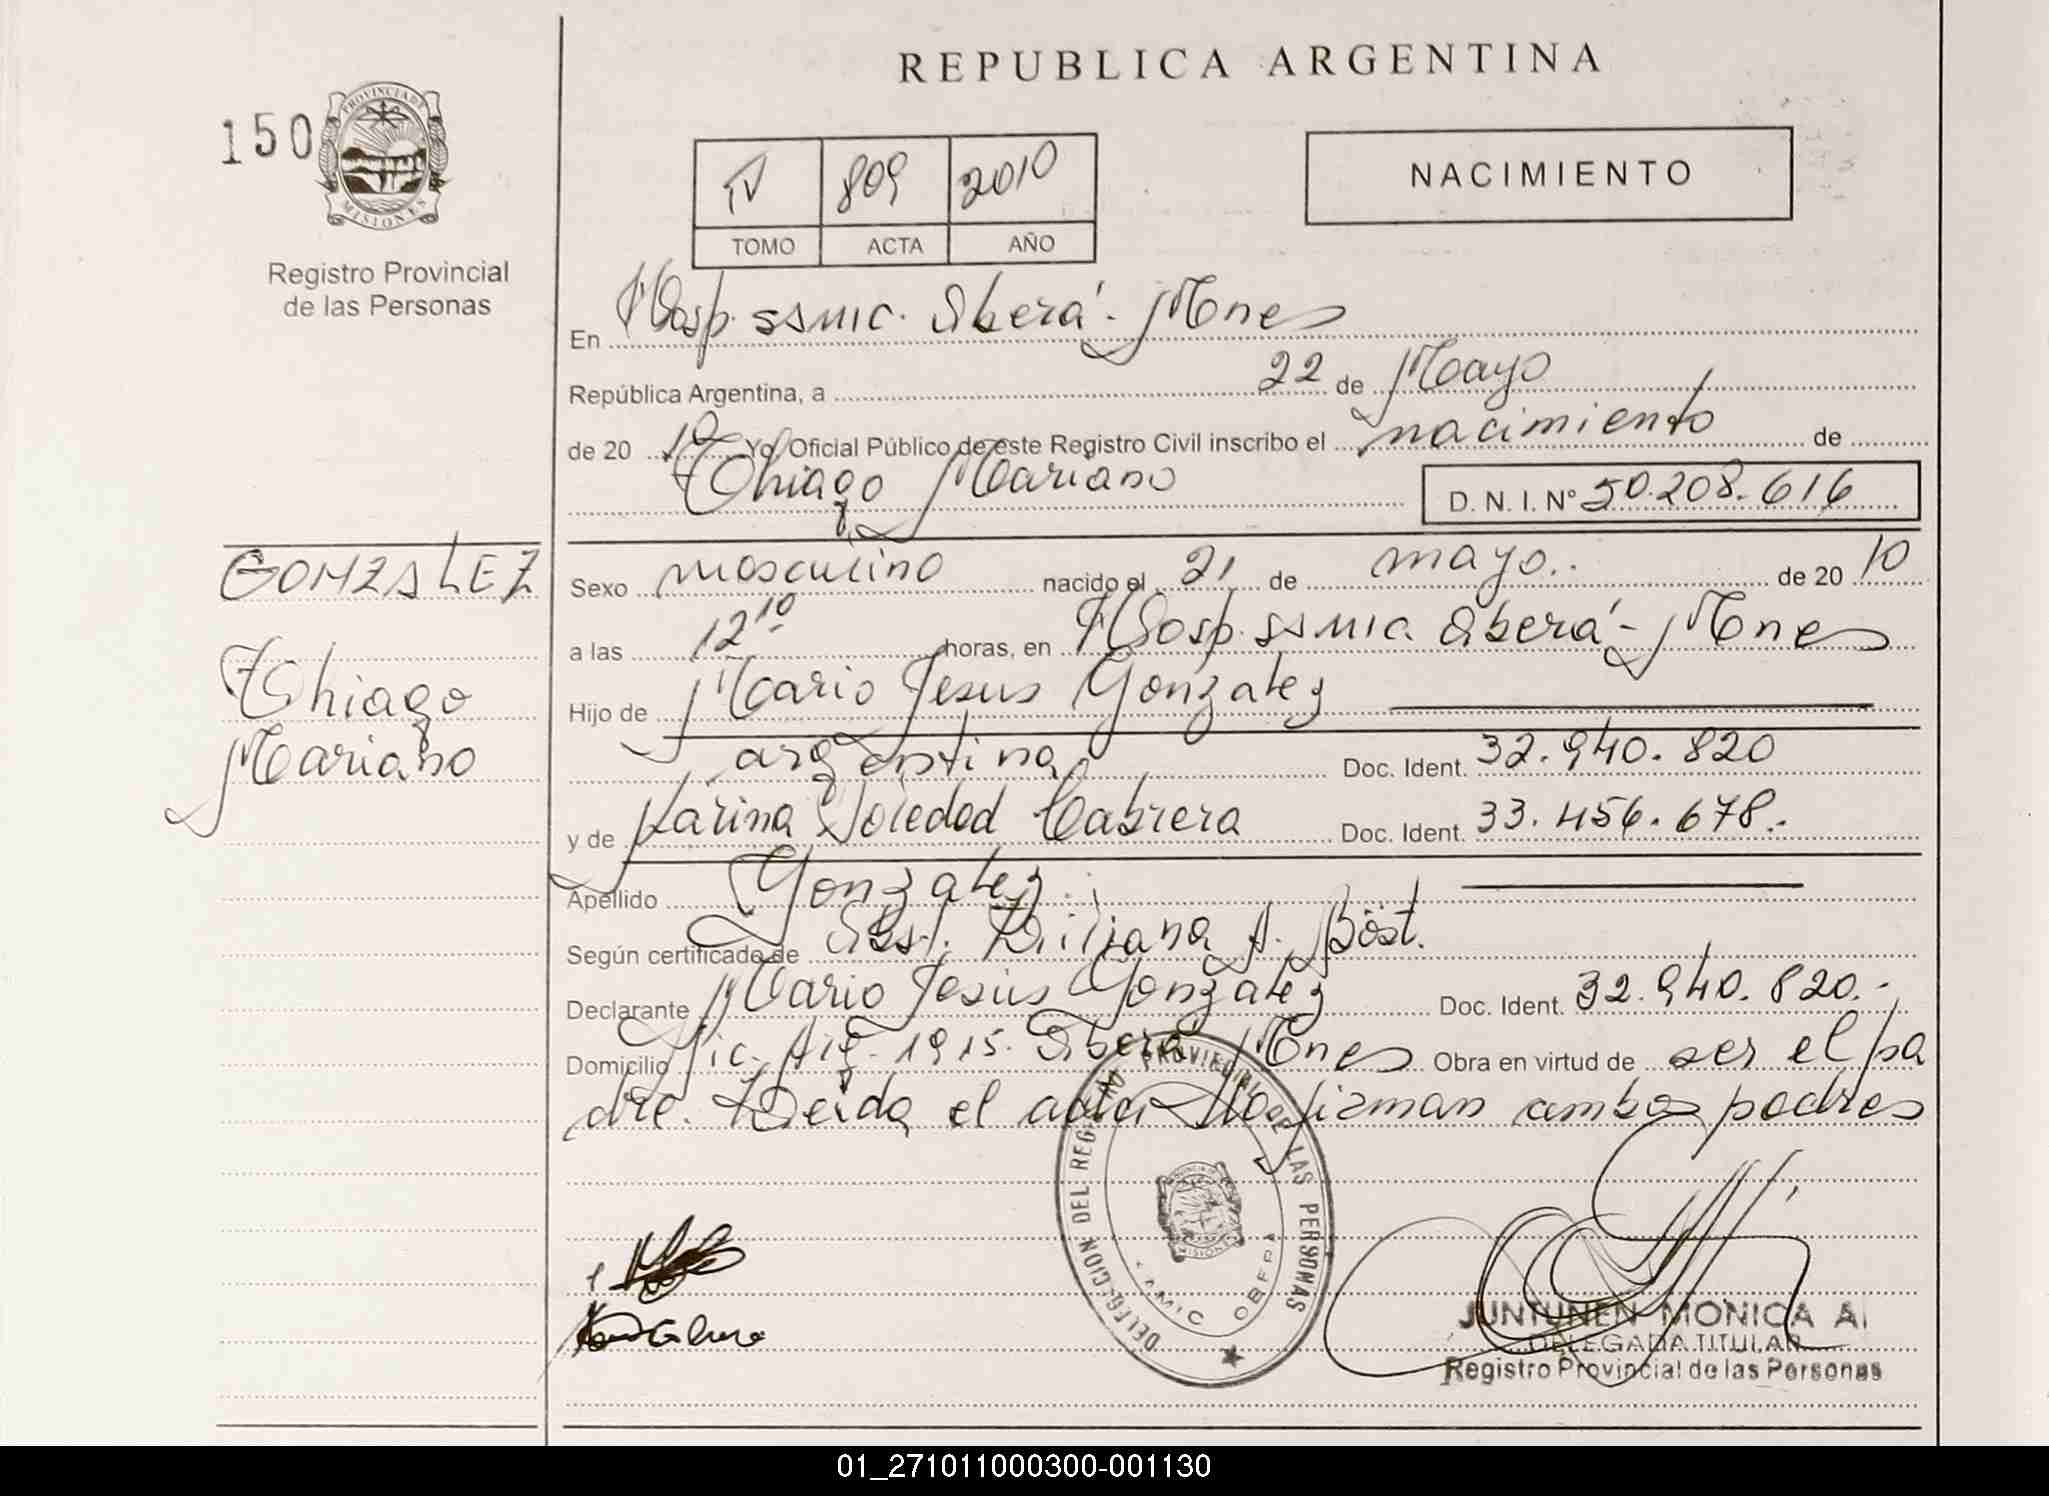 REPUBLICA ARGENTINA
150
PROVINCIA DE
MISIONES
Registro Provincial
de las Personas
NACIMIENTO
IV 809 2010
TOMO ACTA AÑO
En Hosp. SAMIC. Oberá - Mnes
República Argentina, a 22 de Mayo
de 20 10 Yo, Oficial Público de este Registro Civil inscribo el nacimiento de
Thiago Mariano D. N. I. Nº 50.208.616
GONZALEZ
Thiago
Mariano
Sexo masculino nacido el 21 de mayo.. de 20 10
a las 12 10 horas, en Hosp. SAMIC. Oberá - Mnes
Hijo de Mario Jesus Gonzalez
argentina Doc. Ident. 32.940.820
y de Karina Soledad Cabrera Doc. Ident. 33.456.678.-
Apellido Gonzalez
Según certificado de Obst. A. Böst.
Declarante Mario Jesús Gonzalez Doc. Ident. 32.940.820.-
Domicilio 1915. Oberá Mnes Obra en virtud de ser el pa
dre. Leída el acta firman ambos padres
DELEGACION DEL REGISTRO PROVINCIAL DE LAS PERSONAS
SAMIC OBERA
JUNTUNEN MONICA A
DELEGADA TITULAR
Registro Provincial de las Personas
01_271011000300-001130